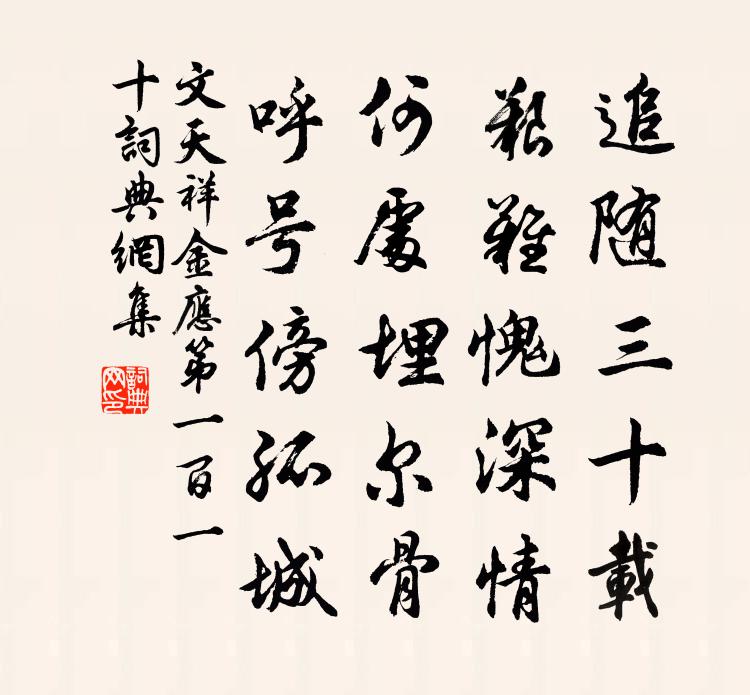 追随三十載
艱難愧深情
何處埋尔骨
呼号傍孤城
文天祥金應第一百一
十詞典網集
詞典
网印